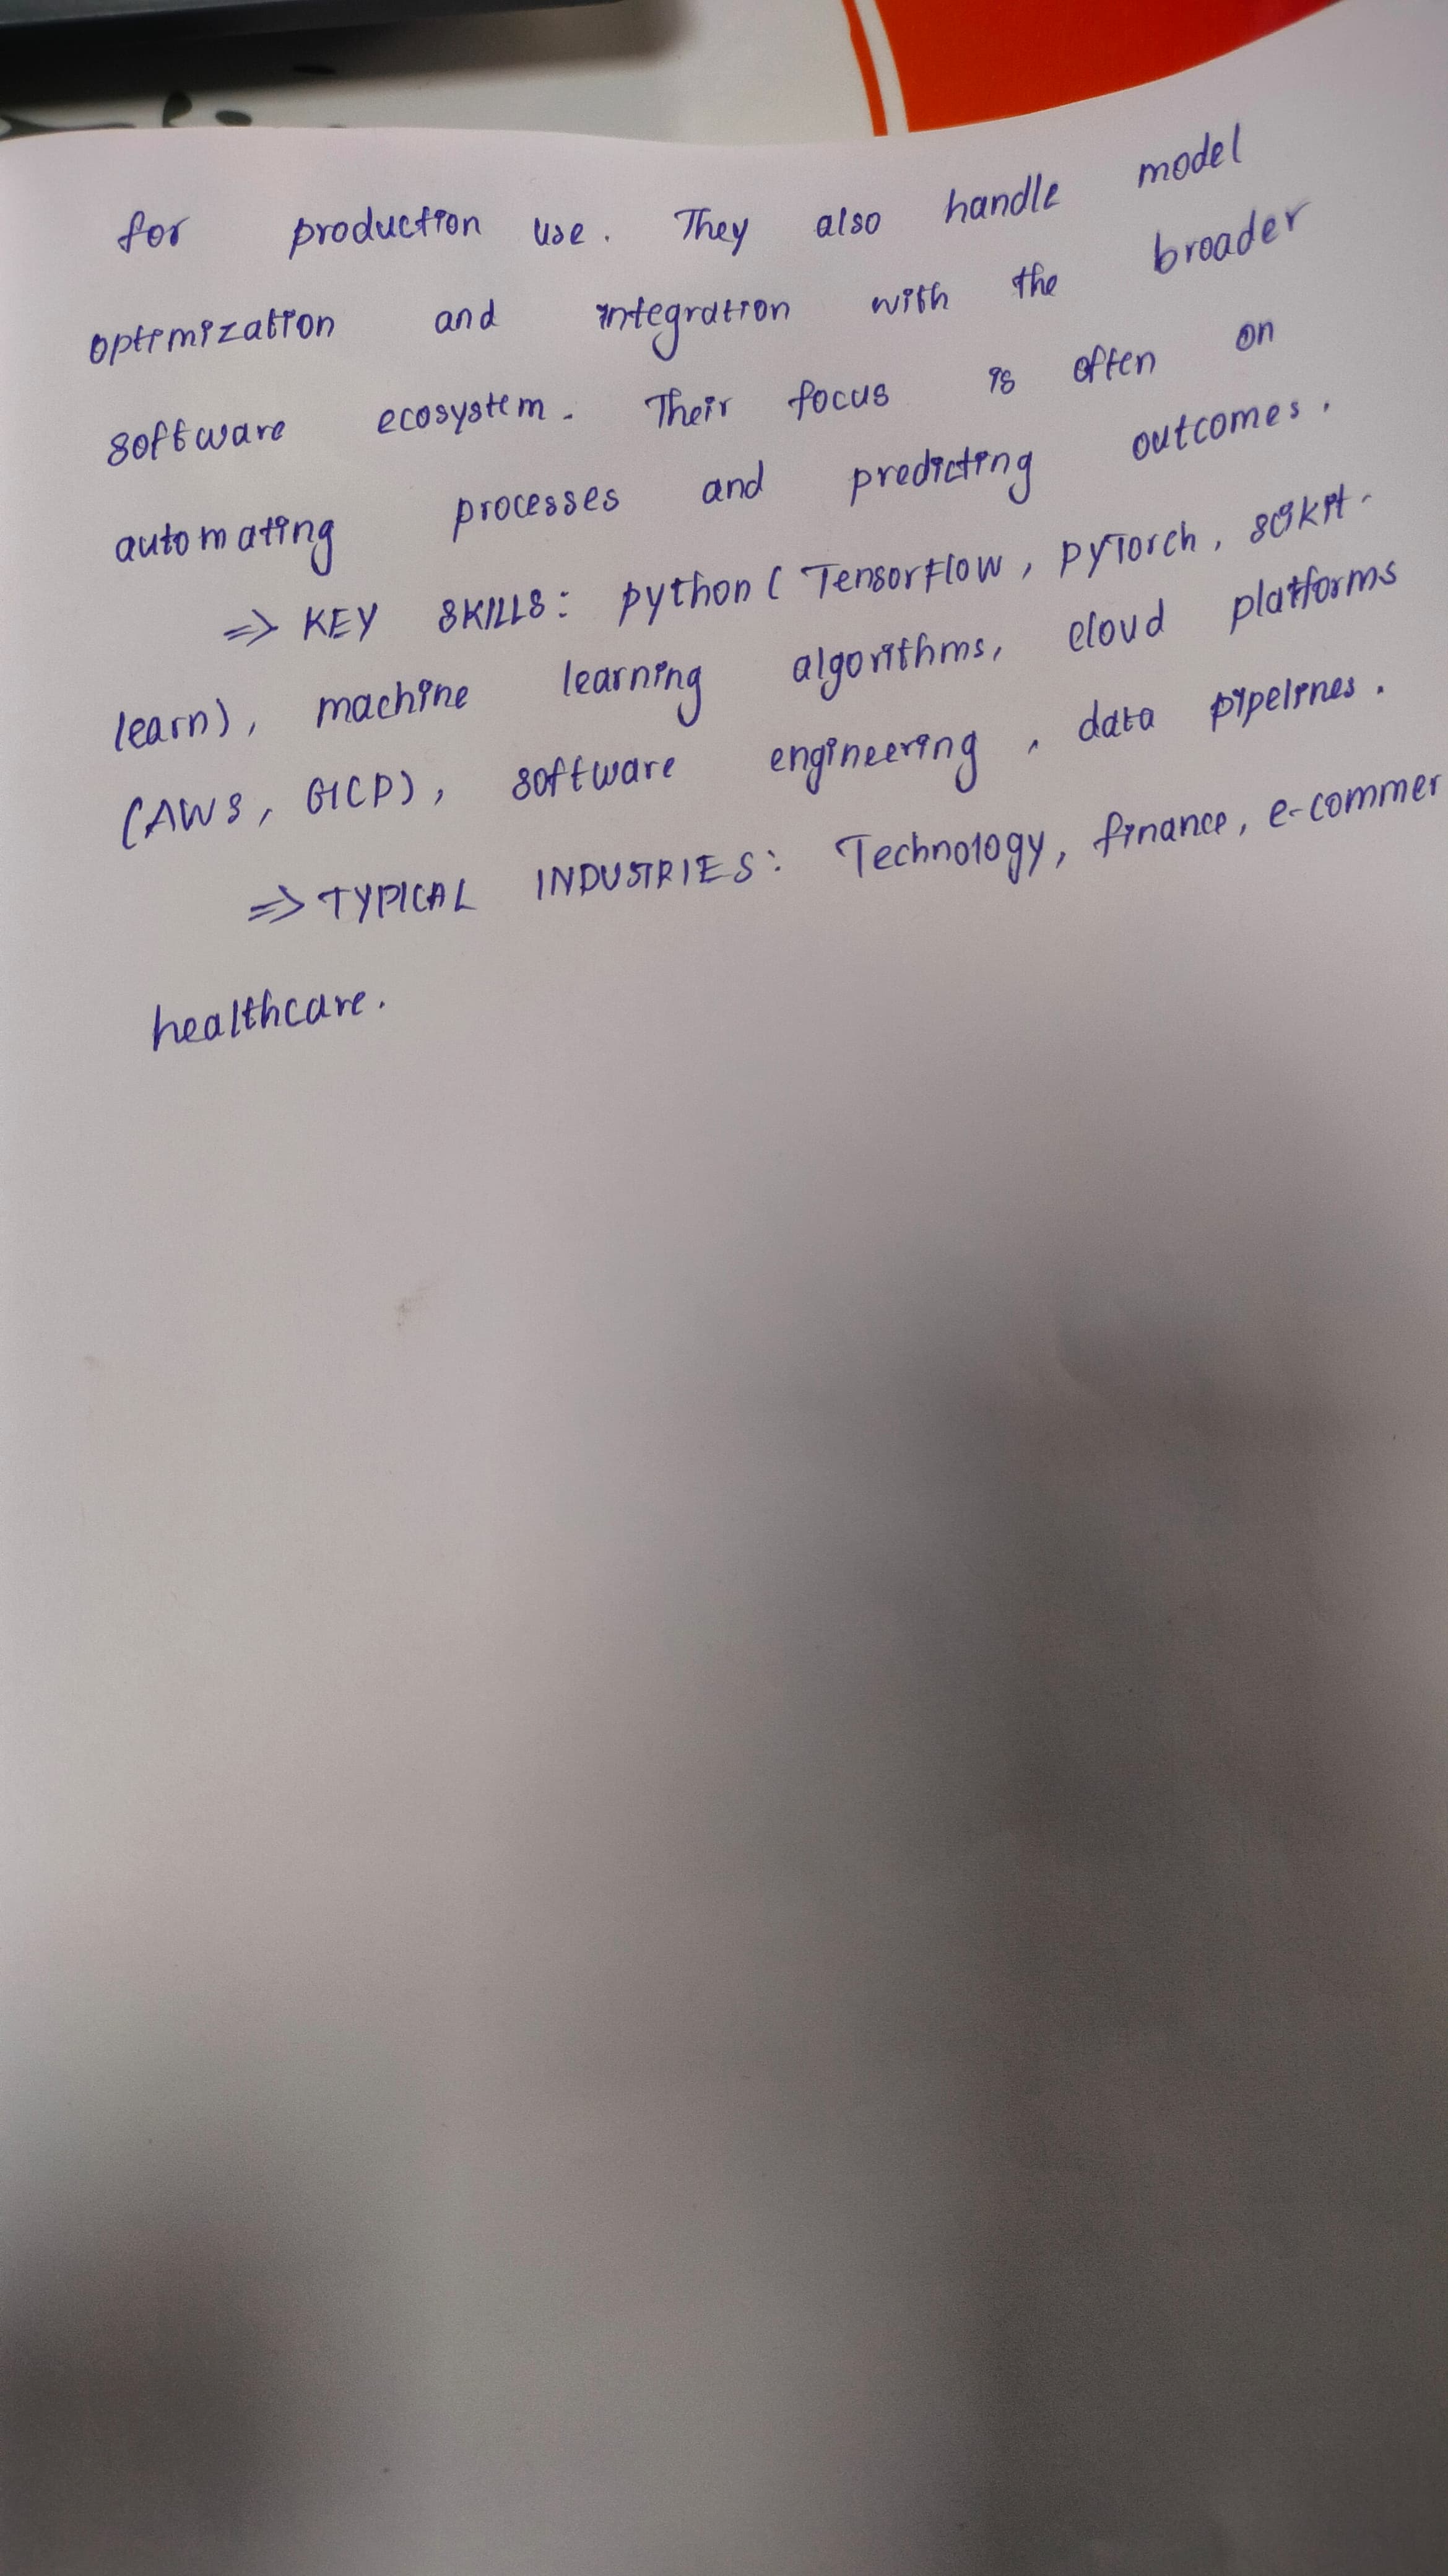 for production use. They also handle model
optimization and integration with the broader
software ecosystem. Their focus is often on
automating processes and predicting outcomes.
=> KEY SKILLS: python (TensorFlow, pyTorch, scikit-
learn), machine learning algorithms, cloud platforms
(AWS, GCP), software engineering, data pipelines.
=> TYPICAL INDUSTRIES: Technology, finance, e-commer
healthcare.